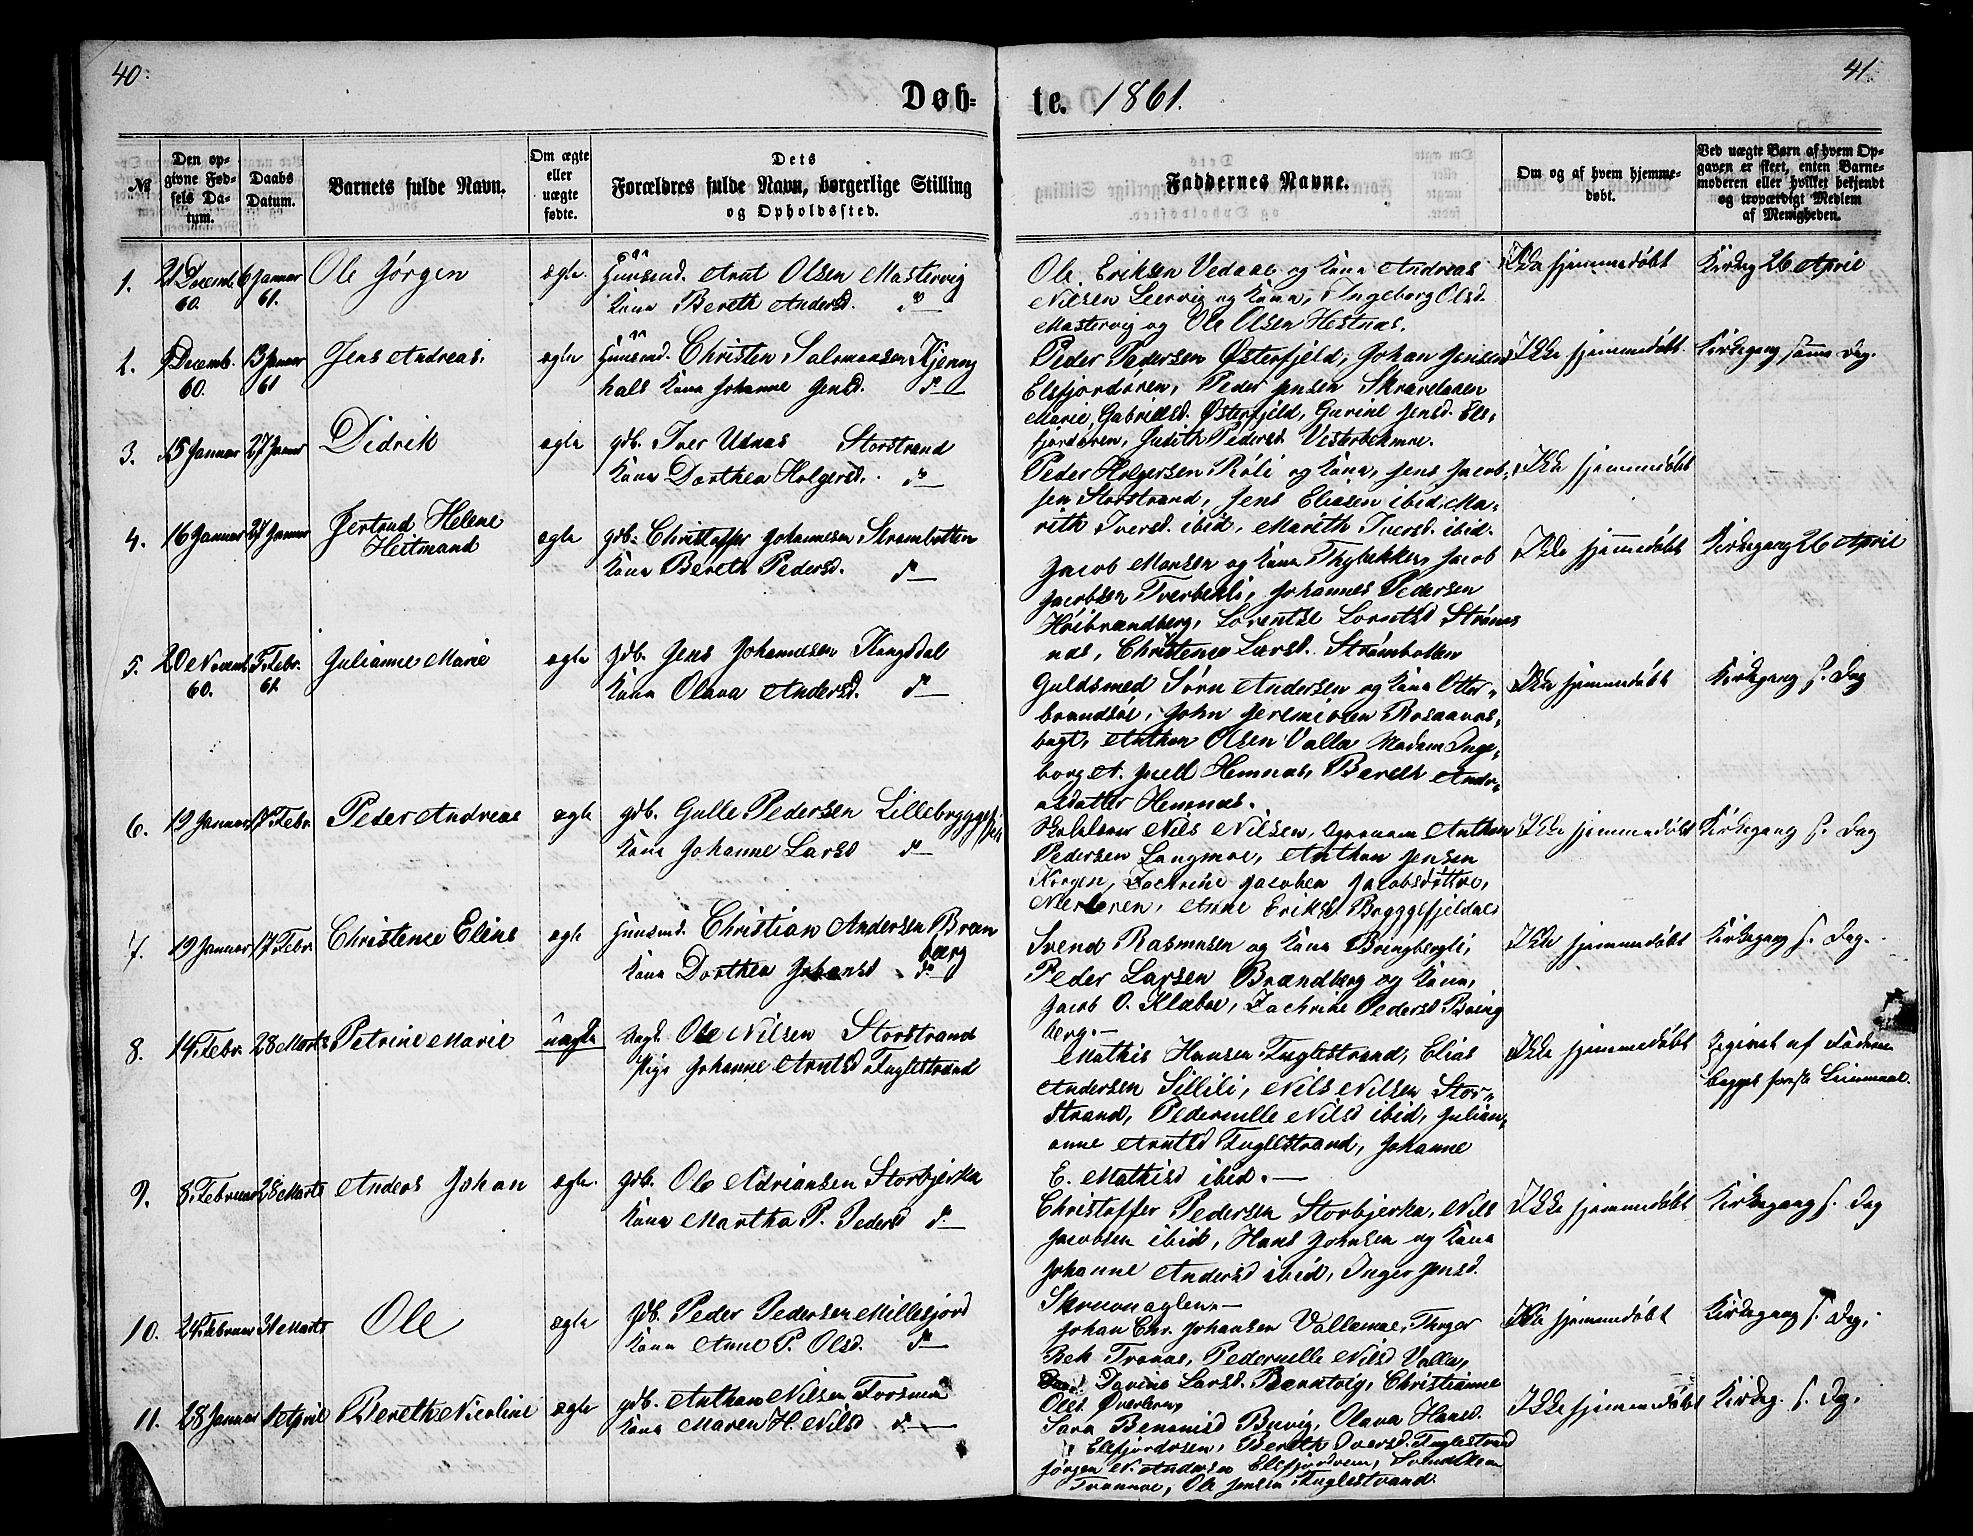 40.
41.
Døb-
te. 1861.
No
Den op-
givne Fød-
sels Da-
tum.
Daabs
Datum.
Barnets fulde Navn.
Om ægte
eller
uægte
fødte.
Dets
Forældres fulde Navn, borgerlige Stilling
og Opholdssted.
Faddernes Navne.
Om og af hvem hjemme-
døbt.
Ved uægte Børn af hvem Op-
gaven er skeet, enten Barne-
moderen eller hvilket bekjendt
og troværdigt Medlem
af Menigheden.
1.
21 Decemb.
60.
6 Januar
61.
Ole Jørgen
ægte
Huusmd. Arnt Olsen Mastervig
Kone Bereth Andersd. do
Ole Eriksen Vedaae og Kone Andreas
Nilsen Leervig og Kone, Ingeborg Olsd.
Mastervig og Ole Olsen Hestnæs.
Ikke hjemmedøbt
Kirkeg 26 April
2.
9 Decemb.
60.
13 Januar
61
Jens Andreas.
ægte
Huusmd. Christen Salomonsen Kjerring
hals Kone Johanne Jensd. do
Peder Pedersen Østerfjeld, Johan Jensen
Elsfjordøren, Peder Jensen
Marie Gabrielsd. Østerfjeld, Gurine Jensd. Els-
fjordøren, Judith Pedersd.
Ikke hjemmedøbt.
Kirkegang samme Dag.
3.
15 Januar
27 Januar
Didrik
ægte
gdb. Iver Storstrand
Kone Dorthea Holgersd. do
Peder Holgersen Røli og Kone, Jens Jacob-
sen Storstrand, Jens Eliasen ibid, Ma-
rith Iversd. ibid, Marith Iversd. ibid.
Ikke hjemmedøbt
4.
16 Januar
27 Januar
Gertrud Helene
Heitmand
ægte
gdb. Christoffer Johannesen Strømbotten
Kone Bereth Pedersd. do
Jacob Monsen og Kone Thybekken, Jacob
Jacobsen Tverbekli, Johannes Pedersen
Lorentse Lorntsd Strøms
næs, Christence Larsd. Strømbotten
Ikke hjemmedøbt
Kirkegang 26 April
5.
20 Novemb.
60.
3 Febr.
61.
Julianne Marie
ægte
gdb. Jens Johannesen Kangsdal
Kone Olava Andersd. do
Guldsmed Sørn Andersen og Kone Otter-
John Jeremiasen Rosaavas-
bugt, Anthon Olsen Valla Madam Inge-
borg A. Juell Hemnæs, Bereth Andr-
asdatter Hemnæs.
Ikke hjemmedøbt
Kirkegang s. Dag
6.
19 Januar
17 Febr.
Peder Andreas
ægte
gdb. Gulle Pedersen Lillebrygge
Kone Johanne Larsd do
Nils Nilsen, Anthon
Pedersen Langmoe, Anthon Jensen
Korgen, Zachrine Jacobea Jacobsdotter,
Anne Eriksd. Bryggefjeldal
Ikke hjemmedøbt
Kirkegang s. Dag
7.
19 Januar
17 Febr
Christence Eline
ægte
Huusmd. Christian Andersen Bran
bærg
Kone Dorthea Johansd do
Svend Rasmusen og Kone Bringbergli,
Peder Larsen Brændberg og Kone,
Jacob O. Klæboe, Zachrine Pedersd Bring
berg.
Ikke hjemmedøbt
Kirkegang s. Dag.
8.
14 Febr.
28 Marts
Petrine Marie
uægte
Ungk. Ole Nilsen Storstrand
Pige Johanne Arntsd Fuglestrand
Mathis Hansen Fuglestrand, Elias
Andersen Sillili, Nils Nilsen Stor-
strand, Pedernille Nilsd ibid, Julian-
anne Arntsd Fuglestrand, Johanne
E. Mathisd ibid.
Ikke hjemmedøbt
Angivet af Faderen
begges første Leiermaal.
9.
8 Februar
28 Marts
Anders Johan
ægte.
gdb. Ole Adriansen Storbjerka
Kone Martha P. Pedersd do
Christoffer Pedersen Storbjerka, Nils
Jacobsen ibid, Hans Johnsen og Kone
Johanne Andersd ibid, Inger Jensd.
Ikke hjemmedøbt
Kirkegang s. Dag
10.
24 Februar
31 Marts
Ole
ægte
gdb. Peder Pedersen Millesjord
Kone Anne P. Olsd. do
Johan Chr. Johansen Vallemoe, Thoger
Bek Tronæs, Pedernille Nilsd Valla,
Davine Larsd. Christianne
Olsd. Øverleren
Ikke hjemmedøbt
Kirkegang s. Dag.
11.
28 Januar
1 April
Bereth Nicoline
ægte
gdb. Anthon Nilsen Forsmo
Kone Maren H. Nilsd do
Sara Benonisd Buvig, Olava Hansd.
Elsfjordøren, Bereth Iversd. Fuglestrand
Jørgen N. Andersen Elsfjordøren,
Ole Jensen Fuglestrand.
Ikke hjemmedøbt
Kirkeg. s. Dag.